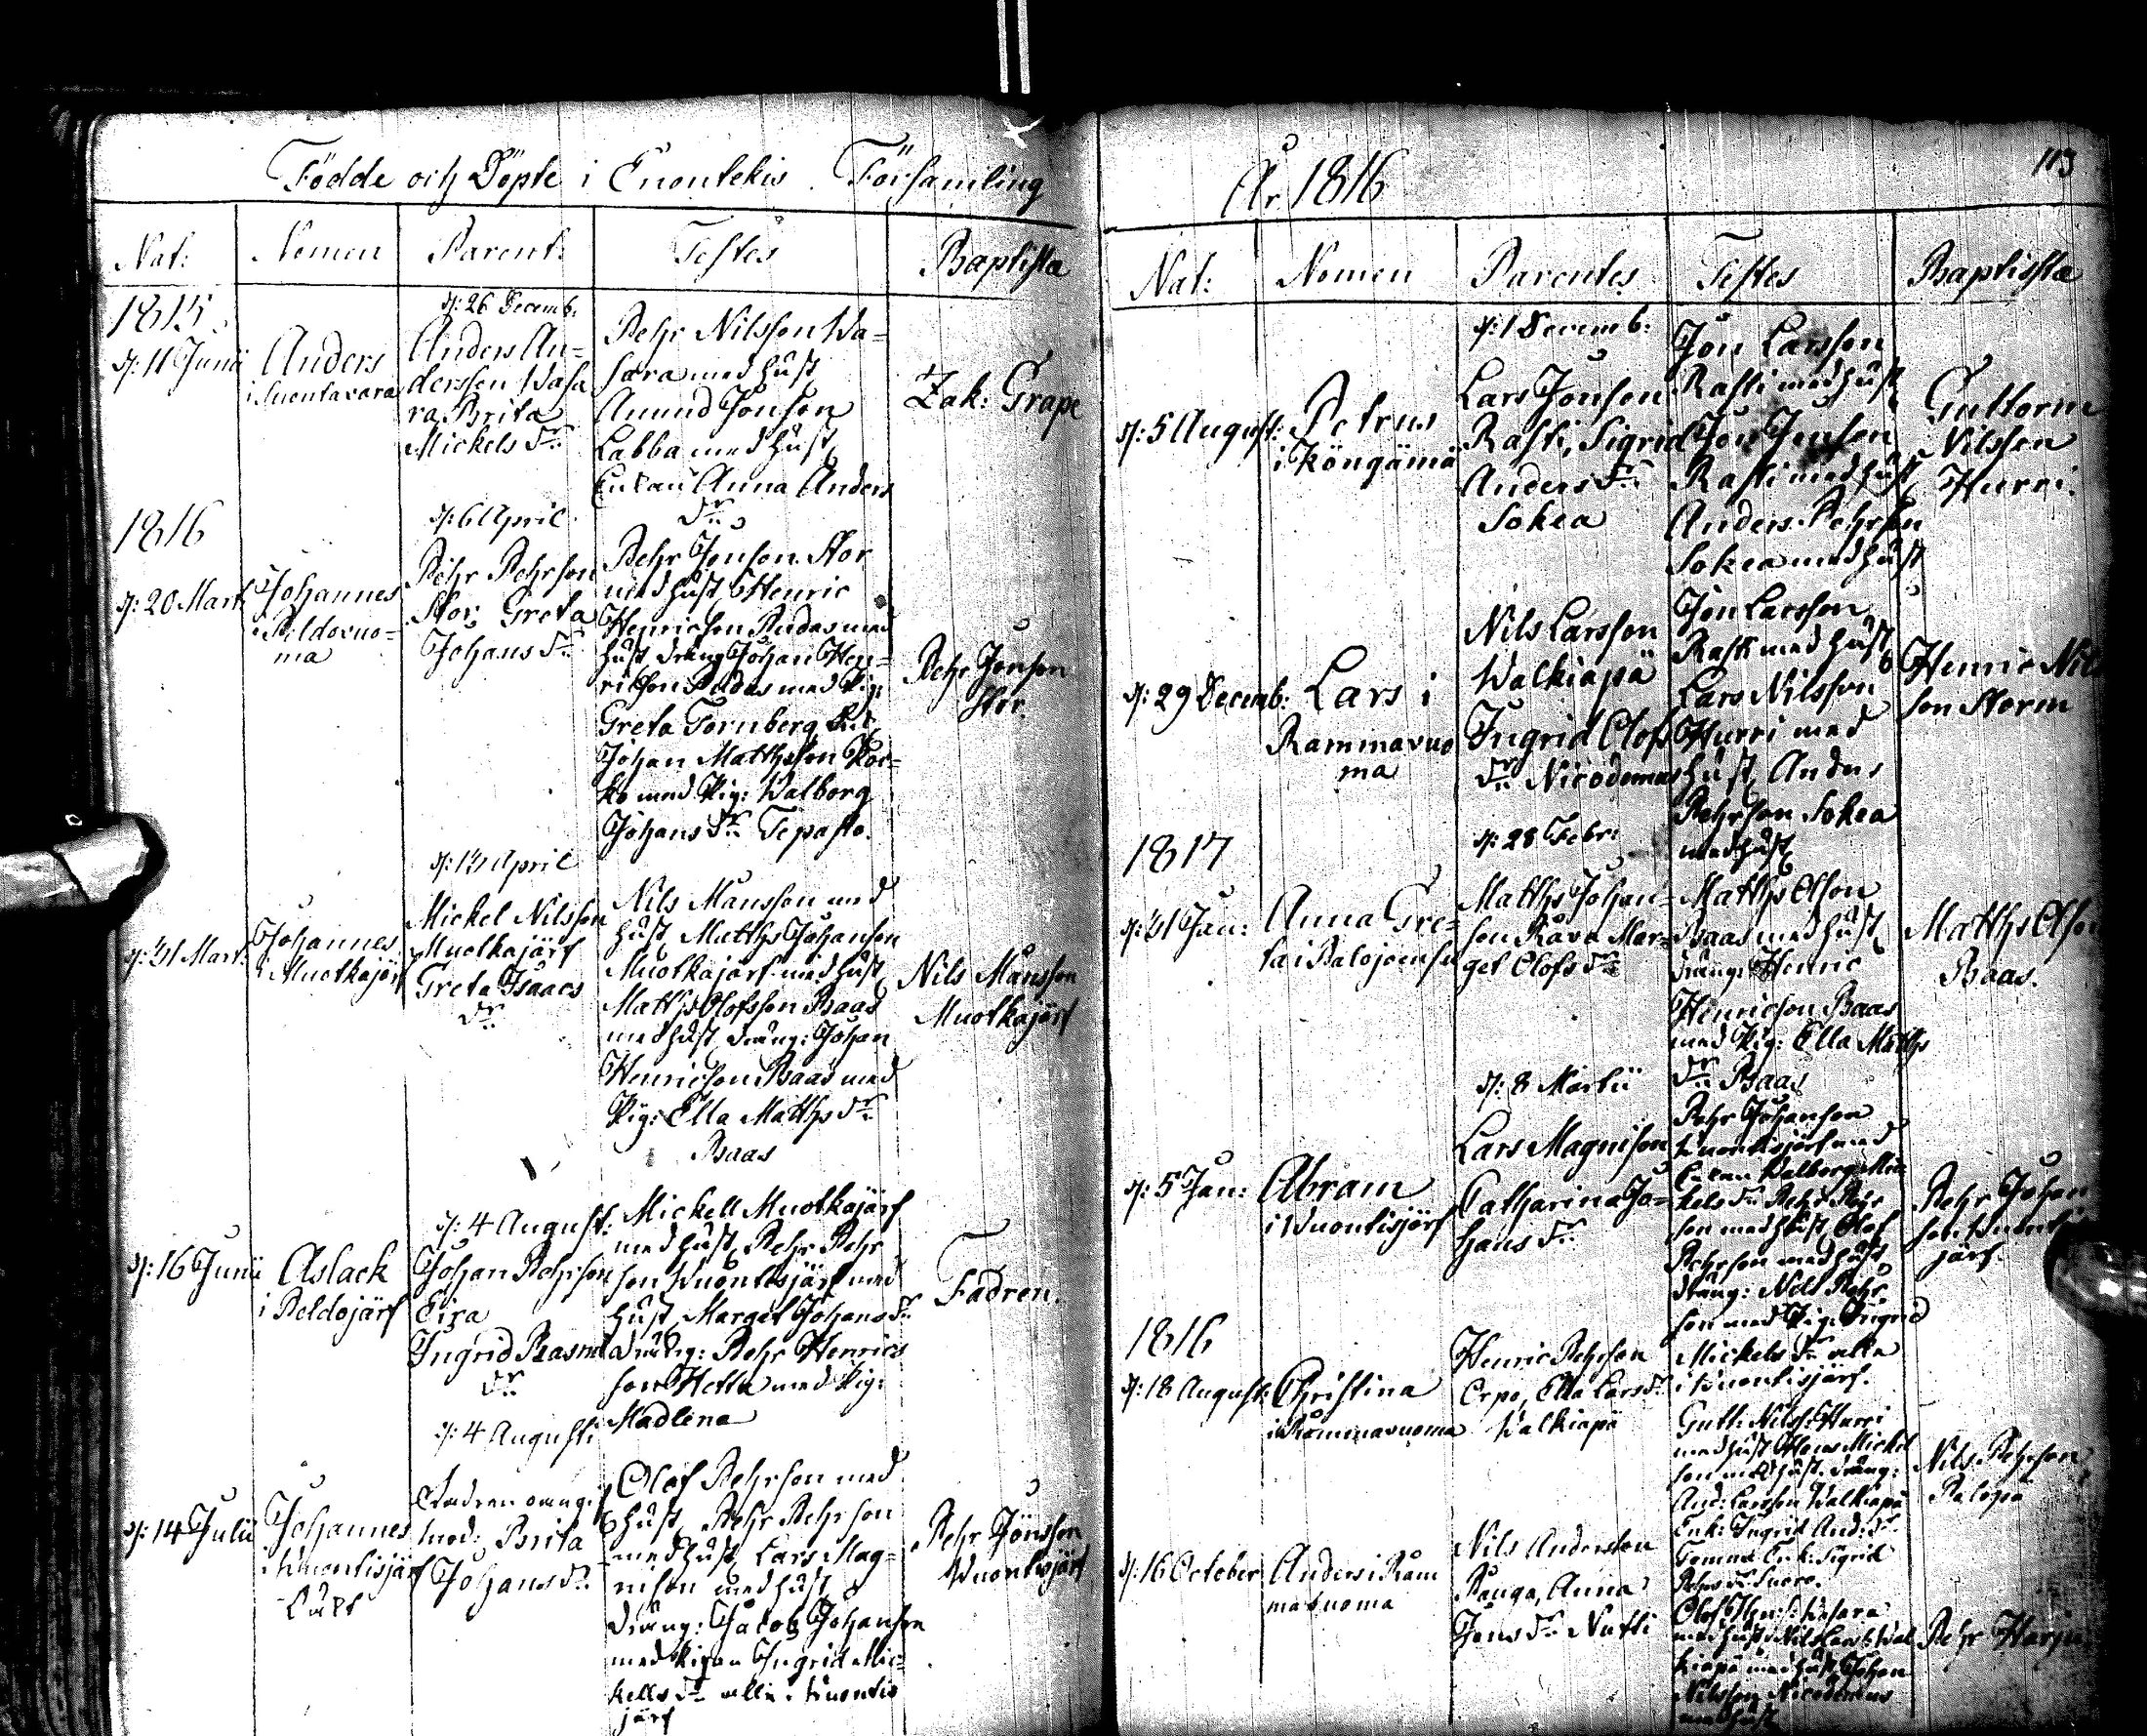 Födde och Döpte i Enontekis Församling
Nat:
Nomen
Parent:
Testes
Baptista
1815
d: 11 Junii
Anders
i Suontavara
d: 26 Decemb:
Anders An=
derssen Wasa
ra, Brita
Mickels dr
Pehr Nilsson Wa=
sara med hust
Amund Jonson
Labba med hust
Enkan Anna Anders
dr
Zak: Grape
1816
d: 20 Mart
Johannes
i Peldovuo=
ma
d: 6 April
Pehr Pehrson
Stor, Greta
Johans dr
Pehr Jonson Stor
med hust Henric
Henricson Pudas med
hust dräng Johan Hen=
ricson Pudas med Pig:
Greta Fornberg
Johan Matthsson Kor=
ko med Pig: Walborg
Johans dr Tepasto.
Pehr Jonson
Stor.
d: 31 Mart:
Johannes
i Muotkajärf
d: 13 April
Mickel Nilsson
Muotkajärf
Greta Isaacs
dr
Nils Mansson med
hust, Matths Johanson
Muotkajärf med hust
Matths Olofsson Baas
med hust, dräng: Johan
Henricson Baas med
Pig: Ella Matths dr
Baas
Nils Månsson
Muotkajärf
d: 16 Junii
Aslack
i Peldojärf
d: 4 August:
Johan Pehrson
Eira
Ingrid Rasmd
dr
Mickell Muotkajärf
med hust, Pehr Pehr
son Wuontisjärf med
hust, Marget Johans dr
dräng: Pehr Henrics
son Hetta med Pig:
Madlena
Fadren.
d: 14 Julii
Johannes
i Wuontisjärf
d: 4 Augusti
Fadren oang:
mod: Brita
Johans dr
Olof Pehrson med
hust, Pehr Pehrson
med hust, Lars Mag=
nison med hust
dräng: Jacob Johanson
med Pigan Ingrid Mic=
kells dr alla i Wuontis
järf
Pehr Jönsson
Wuontisjärf
År 1816
113
Nat:
Nomen
Parentes
Testes
Baptista
d: 5 August:
Petrus
i Köngämä
d: 1 Decemb:
Lars Jonson
Rasti, Sigrid
Anders dr
Sokea
Jon Larsson
Rasti med hust
Jon Jonson
Rasti med hust
Anders Pehrson
Sokea med hust
Guttorm
Nilsson
Hurri.
d: 29 Decemb:
Lars i
Rammavuo
ma
Nils Larsson
Walkiapä
Ingrid Olofs
dr Nicodemus
Jon Larsson
Rasti med hust
Lars Nilsson
Hurri med
hust, Anders
Pehrson Sokea
med hust
Henric Nils
son Storm
1817
d: 31 Jan:
Anna Gre=
ta i Palojoensu
d: 28 Febr:
Matths Johan=
son Rava Mar=
get Olofs dr
Matths Olson
Baas med hust
dräng: Henric
Henricson Baas
med Pig: Ella Matths
dr Baas
Matths Olson
Baas.
d: 5 Jan:
Abram
i Wuontisjärf
d: 8 Martii
Lars Magnison
Catharina Jo=
hans dr
Pehr Johanson
Wuontisjärf med
Enkan Walborg Mic
kels dr Pehr Pehr
son med hust, Olof
Pehrson med hust
dräng: Nils Pehr
son med Pig: Ingrid
Mickels dr alla
i Wuontisjärf.
Pehr Johan
son Wuontis
järf.
1816
d: 18 August:
Christina
i Rammavuoma
Henric Pehrson
Orpo, Ella Lars dr
Walkiapä
Gutt: Nilss: Hurri
med hust Hans Mickel
son med hust. dräng:
And: Larsson Walkiapä
Enk: Ingrid And: dr
Tomma Enk: Sigrid
Pehrs dr
Nils Pehrson
Palojä
d: 16 October
Anders i Ram
mavuoma
Nils Anderson
Panga, Anna
Jons dr Nutti
Wasara
med hust, Nils Larss: Wal
kiapä med hust, Johan
Nilsson Nicodemus
med hust
Pehr Harju